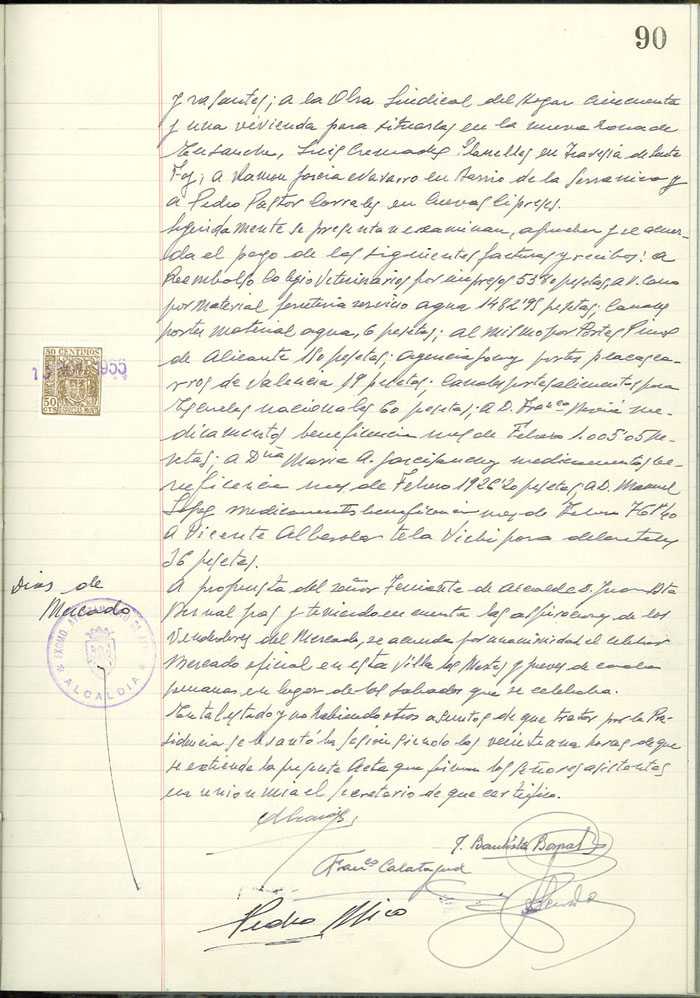 90
y rasantes; a la Obra Sindical del Hogar cincuenta
y una vivienda para situarlas en la nueva zona de
Ensanche, Luis Cremades Planelles en Travesia de Santa
Foz; a Ramon Garcia Navarro en Barrio de la Serranica y
a Pedro Pastor Corrales en Cuevas Cipreses.
Seguidamente se presentan examinan, aprueban y se acuer
da el pago de las siguientes facturas y recibos: a
Reembolso Colegio Veterinarios por impresos 53'80 pesetas, a V. Cano
por Material ferreteria servicio agua 1482'95 pesetas; Canales
portes material agua, 6 pesetas; al mismo por Portes Pinos
de Alicante 110 pesetas; agencia portes placas ca
rros de Valencia 19 pesetas; Canales portes alimentos para
Escuelas nacionales 60 pesetas; a D. Franco me
dicamentos beneficencia mes de Febrero 1.005'05 Pe
setas; a Dña Maria A. medicamentos be
neficencia mes de Febrero 1926'20 pesetas, a D. Manuel
Lopez medicamentos beneficencia mes de Febrero
a Vicente Alberola tela Vichi para delantales
36 pesetas.
Dias de
Mercado
A propuesta del señor Teniente de Alcalde D. Juan Bta
y teniendo en cuenta las aspiraciones de los
Vendedores del Mercado, se acuerda por unanimidad el celebrar
Mercado oficial en esta Villa los Martes y jueves de cada
semana en lugar de los sabados que se celebraba.
En tal estado y no habiendo otros asuntos de que tratar por la Pre
sidencia se levantó la sesion siendo las veintiuna horas de que
se extiende la presente Acta que firman los señores asistentes
en union mia el Secretario de que certifico.
J. Bautista
Franco Calatayud
Pedro Mico
50 CENTIMOS
50 CTS
ESPECIAL MOVIL
1955
EXCMO. AYUNTAMIENTO
ALCALDIA